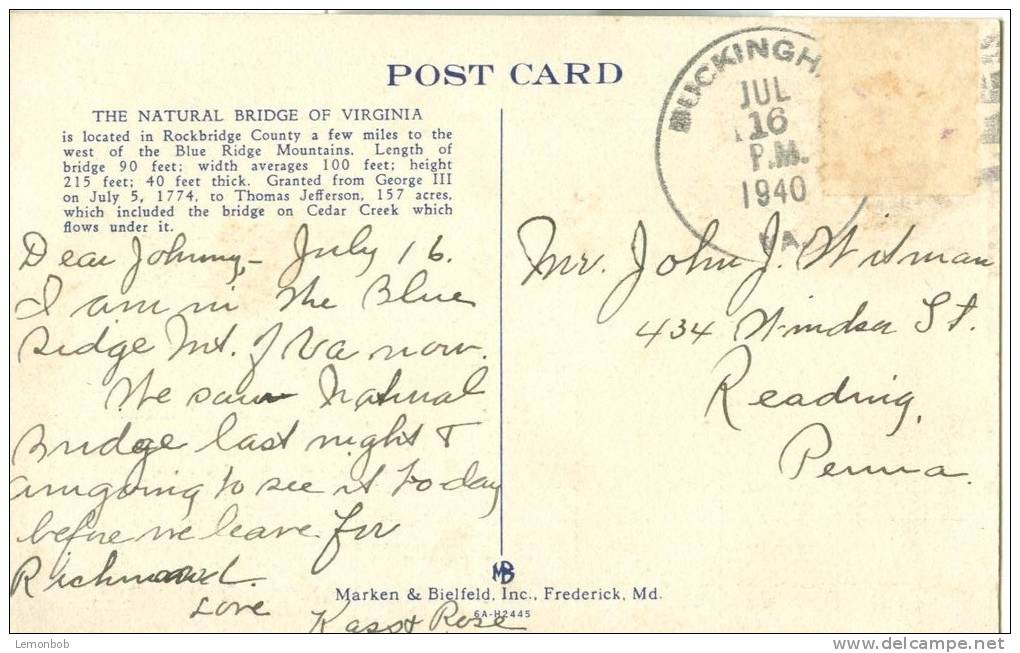 POST CARD
THE NATURAL BRIDGE OF VIRGINIA
is located in Rockbridge County a few miles to the
west of the Blue Ridge Mountains. Length of
bridge 90 feet; width averages 100 feet; height
215 feet; 40 feet thick. Granted from George III
on July 5, 1774, to Thomas Jefferson, 157 acres,
which included the bridge on Cedar Creek which
flows under it.
Dear Johnny,- July 16.
I am in the Blue
Ridge Mt. of Va now.
We saw Natural
Bridge last night &
am going to see it today
before we leave for
Richmond.
Love
Kass & Rose
BUCKINGHA
JUL
16
P.M.
1940
VA.
Mr. John J. Witman
434 Windsor St.
Reading,
Penna.
MB
Marken & Bielfeld, Inc., Frederick, Md.
6A-H2445
Lemonbob
www.delcampe.net